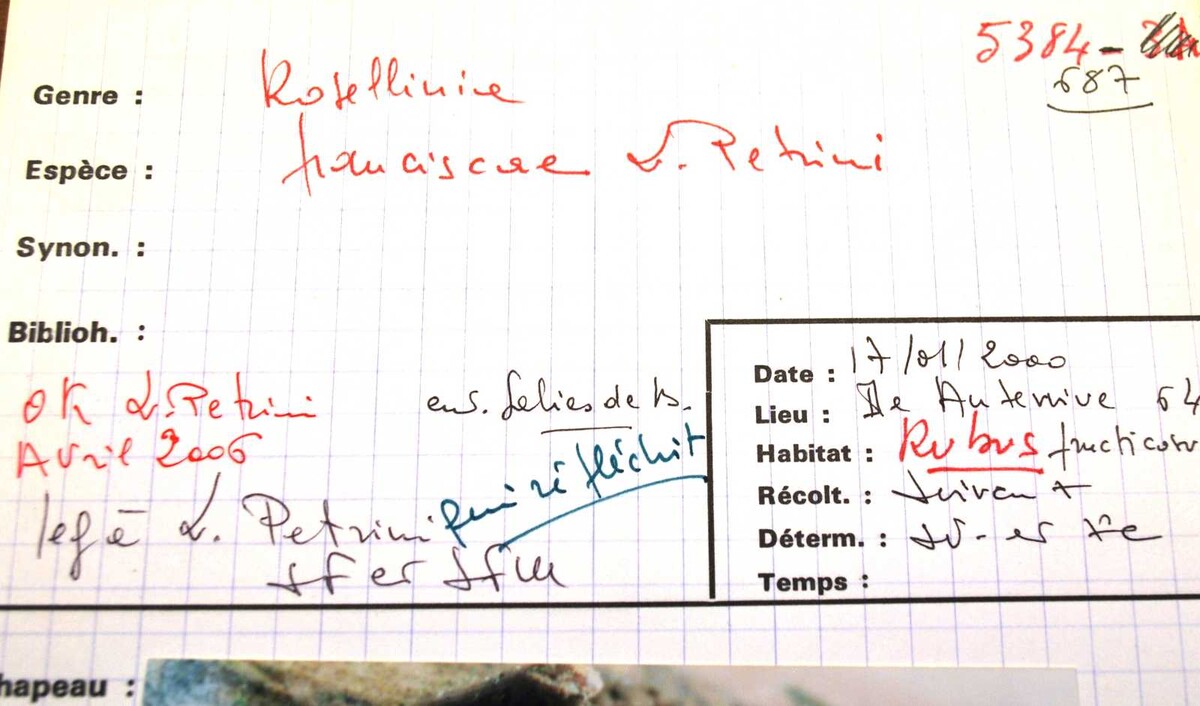 5384-
687
Genre : Rosellinia
Espèce : franciscae L. Petrini
Synon. :
Biblioh. :
OK L. Petrini
Avril 2006
env. Salies de B.
leg à L. Petrini qui réfléchit
Date : 17/01/2000
Lieu : De Auterrive 64
Habitat : Rubus fructicosu
Récolt. : suivant
Déterm. :
Temps :
hapeau :